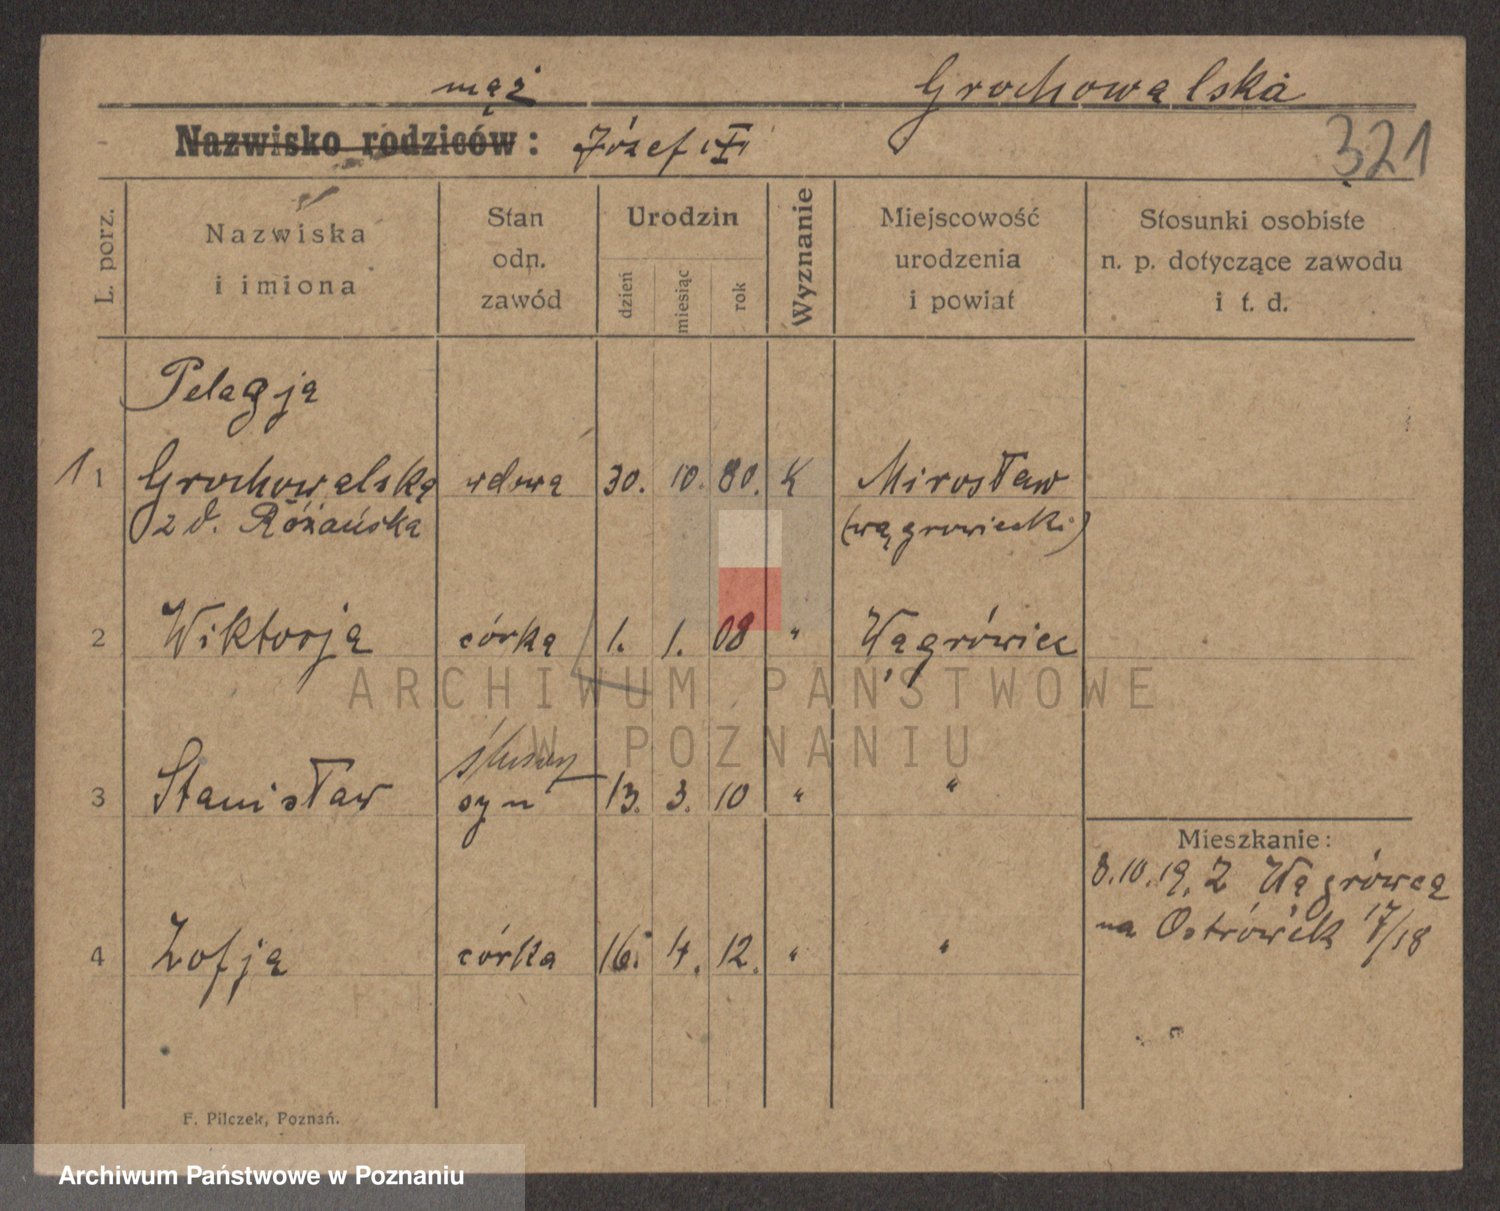 mąż Grochowalska
Nazwisko rodziców: Józef
321
L. porz. Nazwiska i imiona Stan odn. zawód Urodzin dzień miesiąc rok Wyznanie Miejscowość urodzenia i powiat Stosunki osobiste n. p. dotyczące zawodu i t. d.
Pelagja
1 1 Grochowalska wdowa 30. 10. 80. K Mirosław
z d. Różańska (wągrowiecki)
2 Wiktorja córka 1. 1. 08 " Wągrówiec
ARCHIWUM PAŃSTWOWE
W POZNANIU
3 Stanisław syn 13. 3. 10 " "
Mieszkanie:
8.10.19. Z Wągrówca
na Ostrówek 17/18
4 Zofja córka 16. 4. 12. " "
F. Pilczek, Poznań.
Archiwum Państwowe w Poznaniu